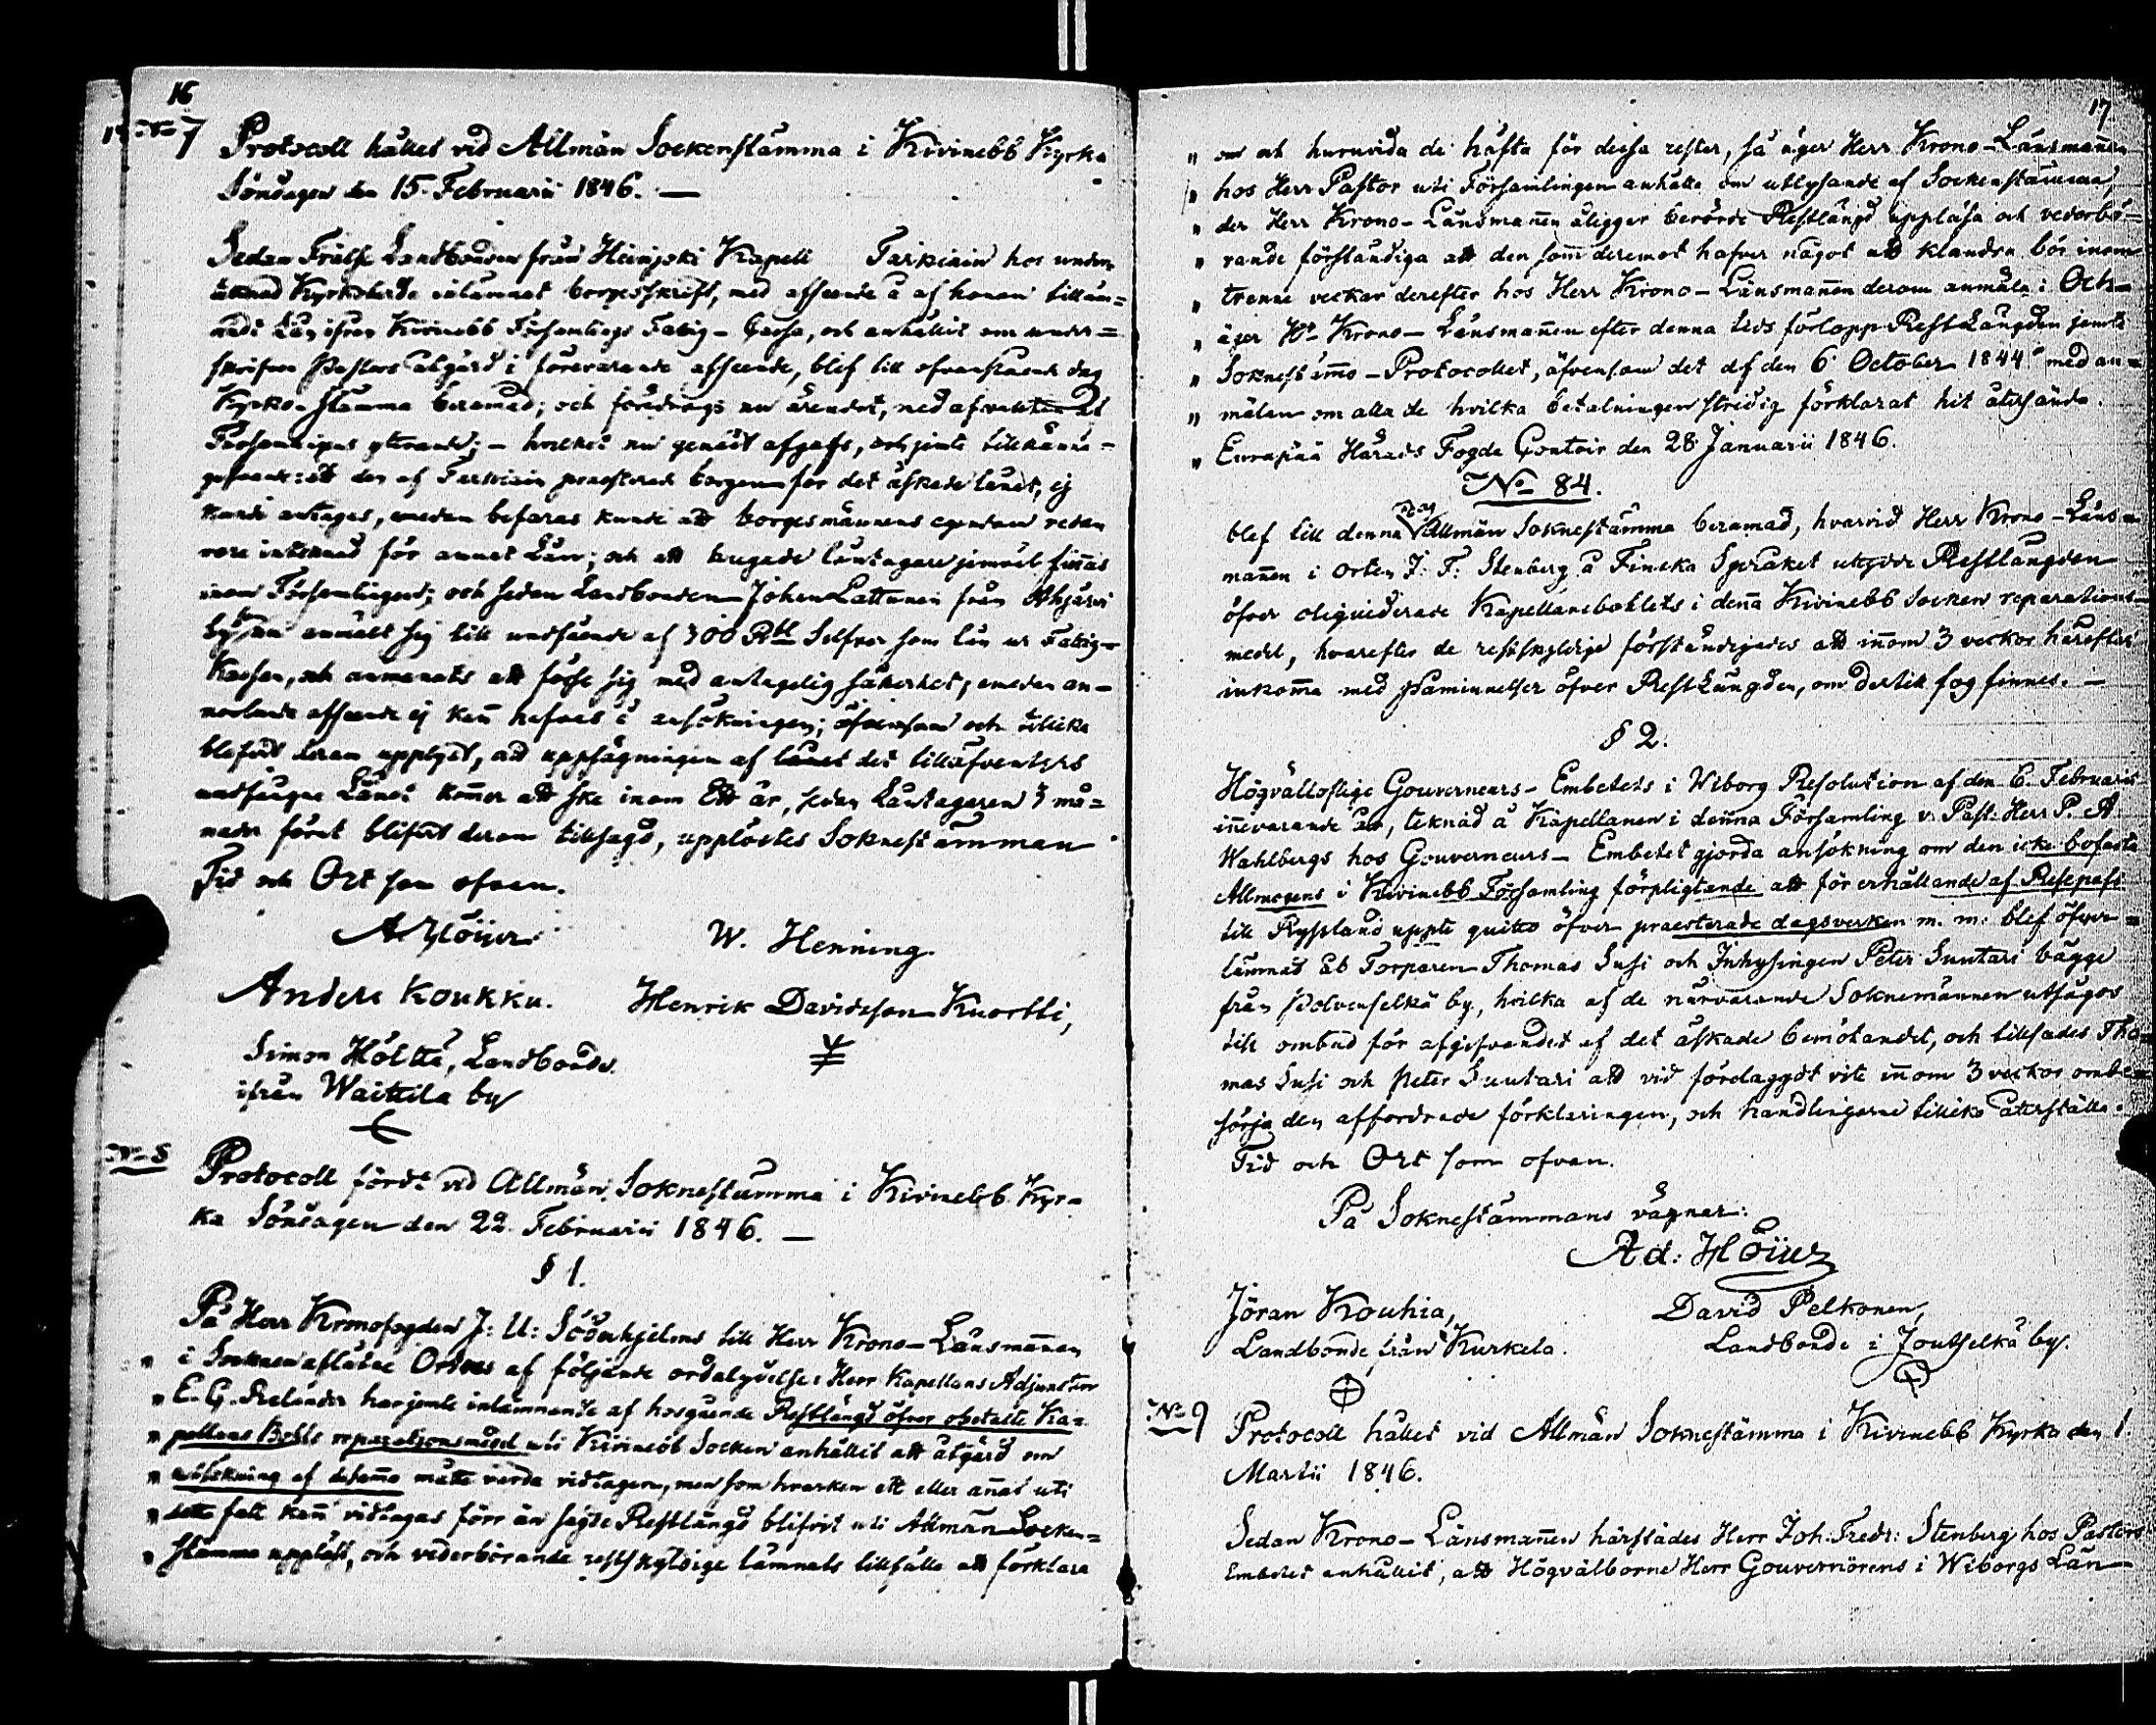 16
No 7
Protocoll hållet vid Allmän Sockenstämma i Kivinebb Kyrka
Söndagen den 15. Februarii 1846. —
Sedan Frälse Landbonden från Heinjoki Kapell Tarkiain hos under-
teknad Kyrkoherde inlämnat borgesskrift, med afseende å af honom tilläm=
nadt Lån ifrån Kivinebb Församlings Fattig-Cassa, och anhållit om under=
skrifven Pastors åtgärd i förevarande afseende, blef till ofvanstående dag
Kyrko-stämma beramad; och föredrogs nu ärendet, med afvaktan af
Församlingens yttrande; — hvilket nu genast afgafs, och jemte tillkänna-
gifvande: att den af Tarkiain praesterade borgen för det äskade lånet, ej
kunde antages, emedan befaras kunde att borgesmännens egendom redan
vore intecknad för annat Lån; och att trugade låntagare jemväl finnas
inom Församlingen; och sedan Landbonden Johan Lattunen från Ahjärvi
by nu anmält sig till undfående af 300 Rbl Silfver som lån ur Fattig-
Kassan, och anmanats att förse sig med antagelig säkerhet, emedan an-
norlunda afseende ej kan hafvas å ansökningen; äfvensom och tillika
blifvit derom upplyst, att uppsägningen af lånet det tilläfventyrs
undfångna Lånet kommer att ske inom Ett år, sedan Låntagaren 3 må=
nader förut blifvit derom tillsagd, upplöstes Soknestämman
Tid och Ort som ofvan.
A. Höijer
W. Henning.
Anders Koukku.
Henrik Davidsson Kuortti,
Simon Hölttä, Landbonde.
ifrån Waittila by
No 8
Protocoll fördt vid Allmän Soknestämma i Kivinebb Kyr=
ka Söndagen den 22. Februarii 1846. —
§ 1.
På Herr Kronofogden J: U: Söderhjelms till Herr Krono-Länsmannen
" i Socknen aflåtne Ordres af följande ordalydelse: Herr Kapellans Adjuncten
" E. G. Relander har jemte inlämnande af hosgående Restlängd öfver obetalte Ka=
" pellans Bohls reparationsmedel uti Kivinebb Socken anhållit att åtgärd om
" utsökning af desamma måtte varda vidtagen, men som hvarken ett eller annat uti
" detta fall kan vidtagas förr än sagde Restlängd blifvit uti Allmän Socken=
" stämma uppläst, och vederbörande restskyldige lämnats tillfälle att förklara
17
" om och huruvida de häfta för dessa rester, så äger Herr Krono-Länsmannen
" hos Herr Pastor uti Församlingen anhålla om utlysande af Sockenstämma,
" der Herr Krono-Länsmannen åligger berörde Restlängd uppläsa och vederbö=
" rande förständiga att den som deremot hafver något att klandra bör inom
" trenne veckor derefter hos Herr Krono-Länsmannen derom anmäla: Och
" äger Hr Krono-Länsmannen efter denna tids förlopp RestLängden jemte
" Soknestämmo-Protocollet, äfvensom det af den 6 October 1844 med an=
" mälan om alla de hvilka betalningen stridig förklarat hit återsända.
" Euräpää Härads Fogde Contoir den 28 Januarii 1846.
No 84.
blef till denna dag Allmän Soknestämma beramad, hvarvid Herr Krono-Läns=
mannen i orten J: F: Stenberg å Finska Språket uttydde Restlängden
öfver oliquiderade Kapellansboklets i denna Kivinebb Socken reparations
medel, hvarefter de restskyldige förständigades att innom 3 veckor härefter
inkomma med påminnelser öfver RestLängden, om dertill fog finnes. —
§ 2.
Högvälloflige Gouverneurs-Embetets i Wiborg Resolution af den 6. Februarii
innevarande år, teknad å Kapellanen i denna Församling v. Past: Herr P. A.
Wahlbergs hos Gouverneurs-Embetet gjorda ansökning om den icke bofasta
Allmogens i Kivinebb Församling förpligtande att för erhållande af Resepass
till Ryssland uppte quitto öfver praesterade dagsverken m. m. blef öfver=
lämnad åt Torparen Thomas Susi och Inhysingen Peter Suntari bägge
från Polvenselkä by, hvilka af de närvarande Soknemännen utsågos
till ombud för afgifvandet af det äskade bemötandet, och tillsades Tho=
mas Susi och Peter Suntari att vid förelaggdt vite innom 3 veckor ombe=
sörja den affordrade förklaringen, och handlingarne tillika återställa.
Tid och Ort som ofvan.
På Soknestämmans vägnar:
Ad: Höijer
Jöran Kouhia,
David Pelkonen,
Landbonde från Kurkela.
Landbonde i Joutselkä by.
No 9
Protocoll hållet vid Allmän Soknestämma i Kivinebb Kyrka den 1.
Martii 1846.
Sedan Krono-Länsmannen härstädes Herr Joh: Fredr: Stenberg hos Pastors
Embetet anhållit, att Högvälborne Herr Gouvernörens i Wiborgs Län